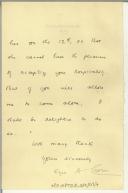 has on the 12th, so that
she cannot have the pleasure
of accepting your hospitality,
but if you will allow
me to come alone, I
shall be delighted to do
so.
With many thanks
Yours sincerely